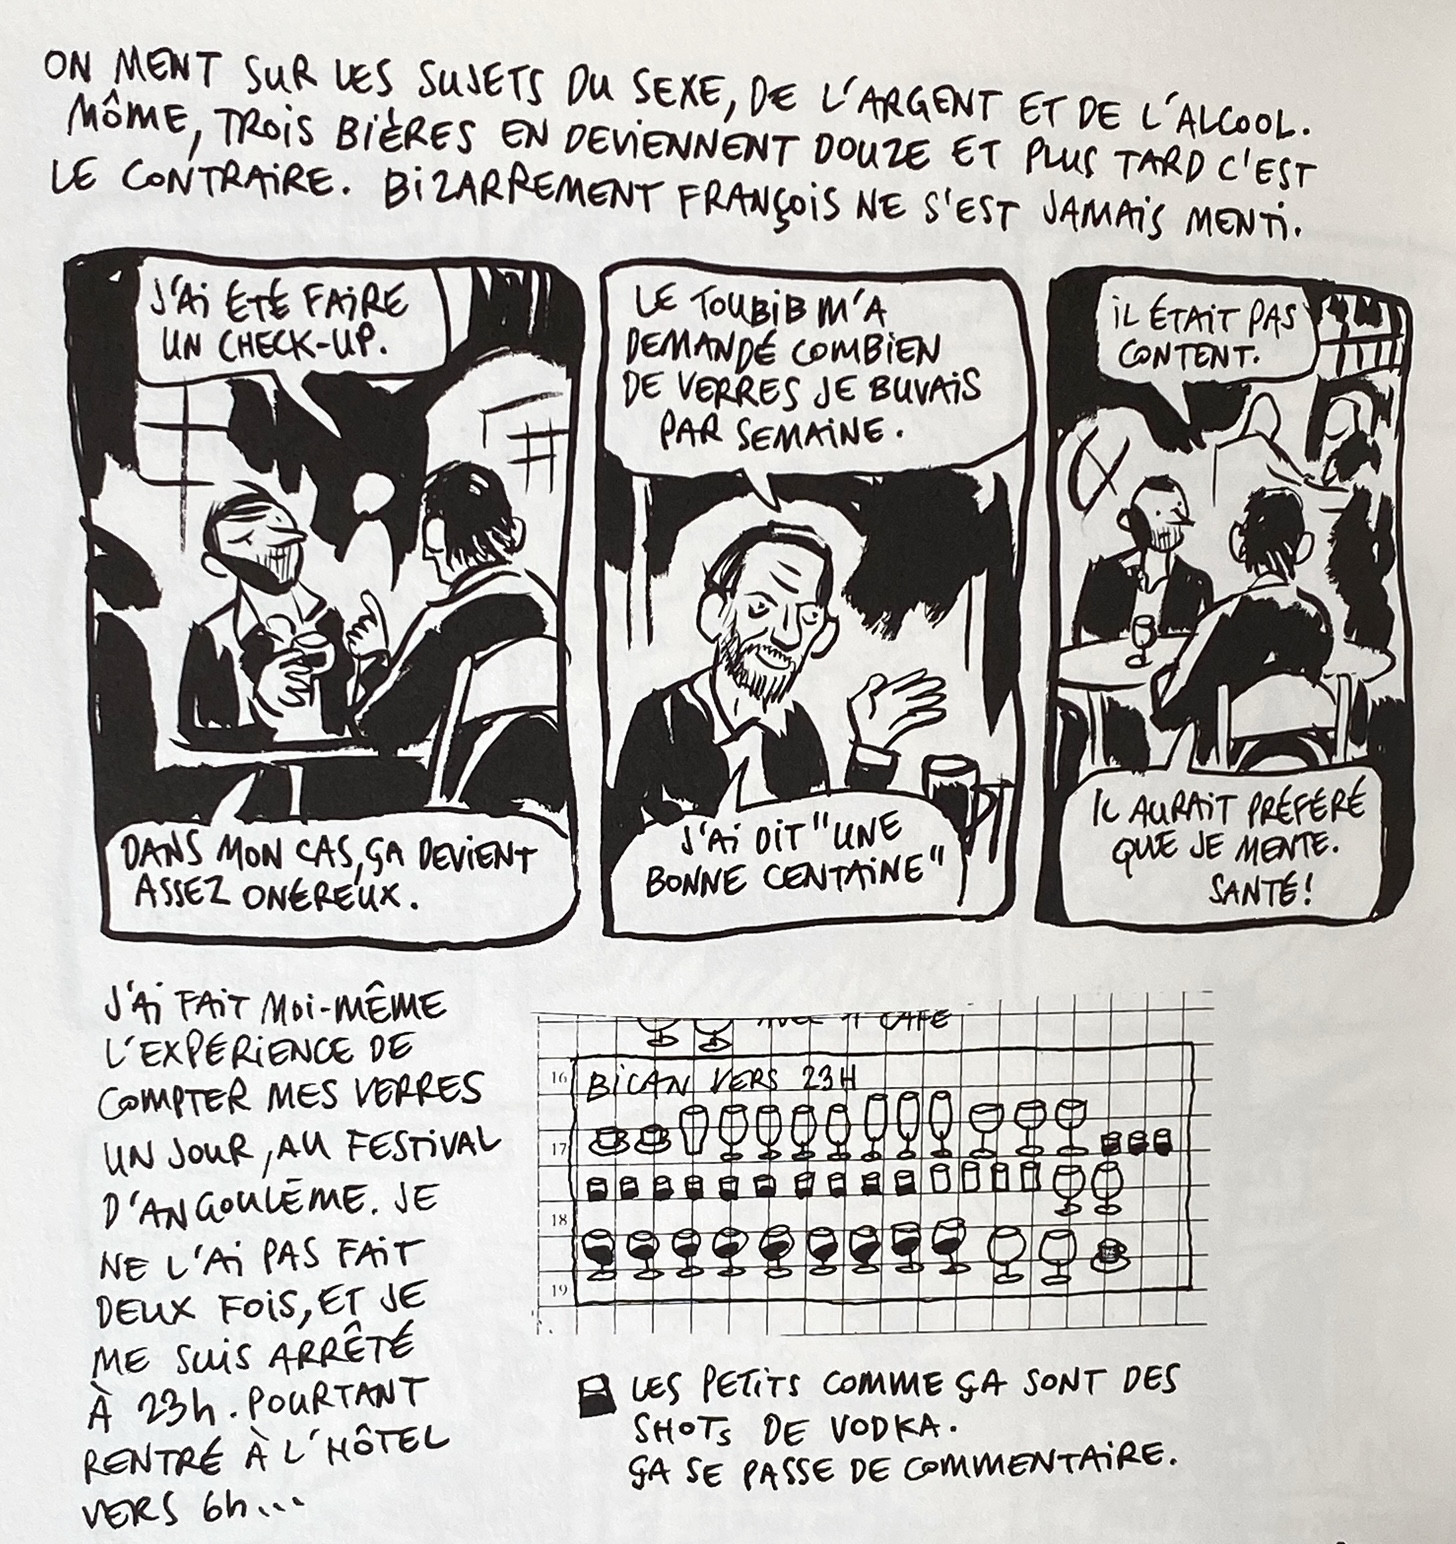 ON MENT SUR LES SUJETS DU SEXE, DE L'ARGENT ET DE L'ALCOOL.
MÔME, TROIS BIÈRES EN DEVIENNENT DOUZE ET PLUS TARD C'EST
LE CONTRAIRE. BIZARREMENT FRANÇOIS NE S'EST JAMAIS MENTI.
J'AI ÉTÉ FAIRE
UN CHECK-UP.
DANS MON CAS, ÇA DEVIENT
ASSEZ ONÉREUX.
LE TOUBIB M'A
DEMANDÉ COMBIEN
DE VERRES JE BUVAIS
PAR SEMAINE.
J'AI DIT "UNE
BONNE CENTAINE"
IL ÉTAIT PAS
CONTENT.
IL AURAIT PRÉFÉRÉ
QUE JE MENTE.
SANTÉ!
J'AI FAIT MOI-MÊME
L'EXPÉRIENCE DE
COMPTER MES VERRES
UN JOUR, AU FESTIVAL
D'ANGOULÊME. JE
NE L'AI PAS FAIT
DEUX FOIS, ET JE
ME SUIS ARRÊTÉ
À 23h. POURTANT
RENTRÉ À L'HÔTEL
VERS 6h...
CAFÉ
16 BICAN VERS 23H
17
18
19
LES PETITS COMME ÇA SONT DES
SHOTS DE VODKA.
ÇA SE PASSE DE COMMENTAIRE.